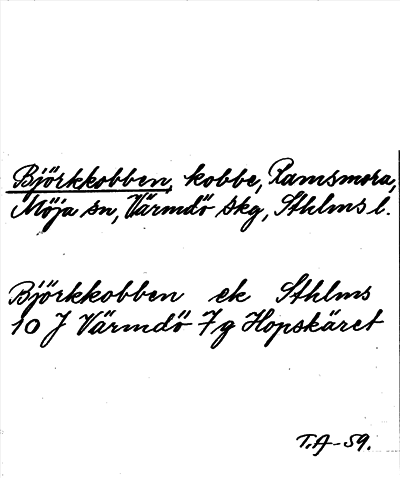 Björkkobben, kobbe, Ramsmora,
Möja sn, Värmdö skg, Sthlms l.
Björkkobben ek Sthlms
10 J Värmdö 7 g Hopskäret
T.A-59.